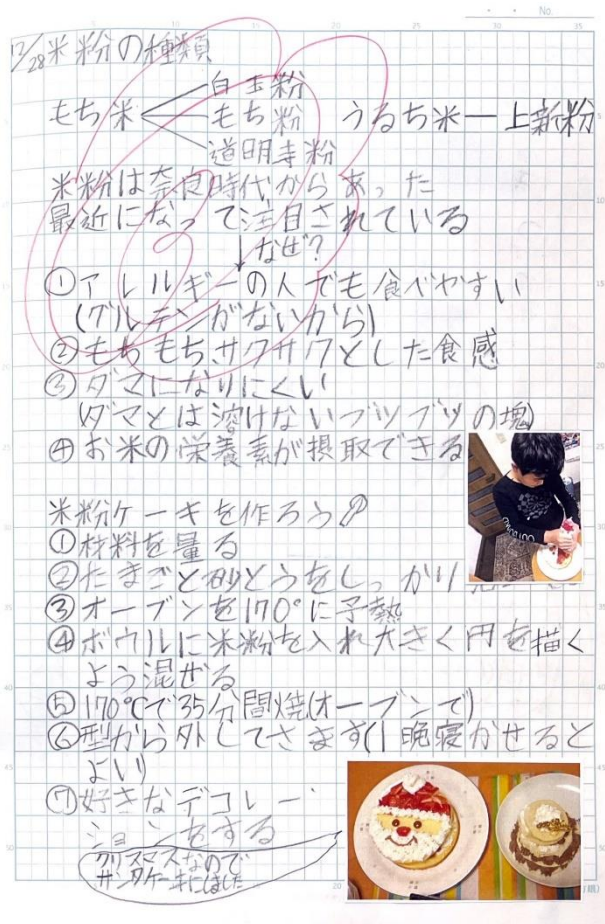 No.
12/28 米粉の種類
白玉粉
もち米 もち粉 うるち米ー上新粉
道明寺粉
米粉は奈良時代からあった
最近になって注目されている
↓なぜ?
①アレルギーの人でも食べやすい
(グルテンがないから)
②もちもち、サクサクとした食感
③ダマになりにくい
(ダマとは溶けないブツブツの塊)
④お米の栄養素が摂取できる
米粉ケーキを作ろう♪
①材料を量る
②たまごと砂とうをしっかり
③オーブンを170°に予熱
④ボウルに米粉を入れ大きく円を描く
よう混ぜる
⑤170℃で35分間焼(オーブンで)
⑥型から外してさます(1晩寝かせると
よい)
⑦好きなデコレー
ションをする
クリスマスなので
サンタケーキにしました